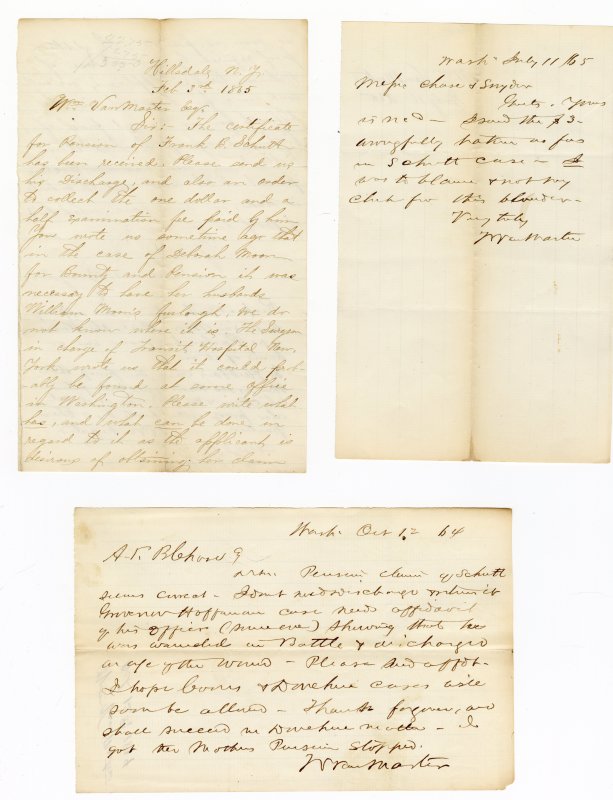 Hillsdale N. Y.
Feb 3th 1865
Wm Van Marter Esq.
Sir:- The certificate
for Pension of Frank E. Schutt
has been received. Please send us
his Discharge, and also an order
to collect the one dollar and a
half examination fee paid by him
You wrote us sometime ago that
in the case of Deborah Moon
for Bounty and Pension it was
necessary to have her husbands
William Moons furlough. We do
not know where it is. The Surgeon
in charge of Transit Hospital New
York wrote us that it could prob-
ably be found at some office
in Washington. Please write what
has, and what can be done in
regard to it as the applicant is
desirous of obtaining her claim
Wash. July 11 / 65
Messrs Chase & Snyder
Gents. Yours
is recd - I send the $3 -
wrongfully taken as fees
in Schutt case - I
was to blame & not my
clerk for this blunder -
Very truly
W Van Marter
Wash. Oct 12 64
Pension claim of Schutt
seems correct - I dont need discharge & return it
Grovenor Hoffman case need affidavit
of his officer (since over) showing that he
was wounded in Battle & discharged
of the wound - Please send affdt -
I hope & Donehue cases will
soon be allowed - Thanks and
shall succeed in Donehue matter - I
got the Mothers Pension stopped.
W Van Marter